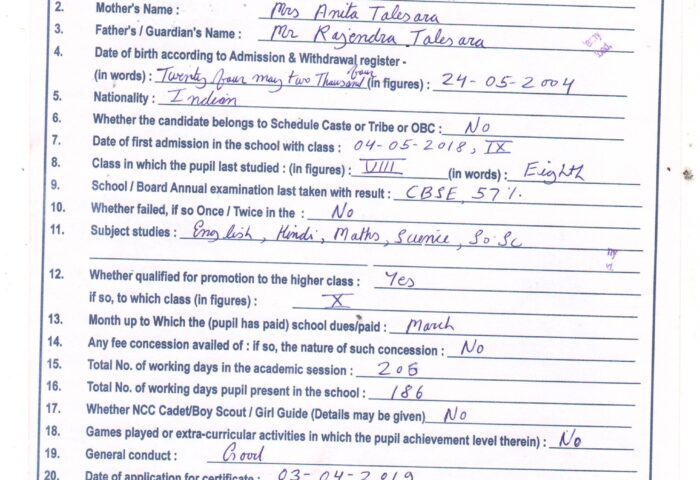 2. Mother's Name : Mrs Anita Talesara
3. Father's / Guardian's Name : Mr Rajendra Talesara
4. Date of birth according to Admission & Withdrawal register -
(in words) : Twenty four may two Thousand four (in figures) : 24-05-2004
5. Nationality : Indian
6. Whether the candidate belongs to Schedule Caste or Tribe or OBC : No
7. Date of first admission in the school with class : 04-05-2018, IX
8. Class in which the pupil last studied : (in figures) : VIII (in words) : Eighth
9. School / Board Annual examination last taken with result : CBSE, 57%
10. Whether failed, if so Once / Twice in the : No
11. Subject studies : English, Hindi, Maths, Science, So.Sc
12. Whether qualified for promotion to the higher class : Yes
if so, to which class (in figures) : X
13. Month up to Which the (pupil has paid) school dues/paid : March
14. Any fee concession availed of : if so, the nature of such concession : No
15. Total No. of working days in the academic session : 205
16. Total No. of working days pupil present in the school : 186
17. Whether NCC Cadet/Boy Scout / Girl Guide (Details may be given) No
18. Games played or extra-curricular activities in which the pupil achievement level therein) : No
19. General conduct : Good
20. Date of application for certificate : 03-04-2019